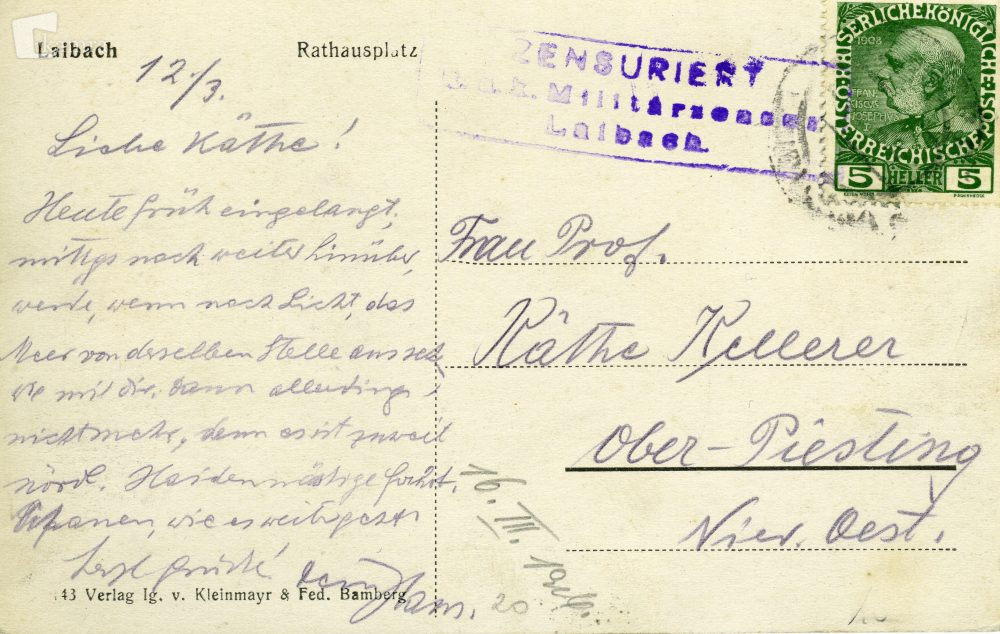 Laibach Rathausplatz
12./3.
Liebe Käthe!
Heute früh eingelangt,
mittgs noch weiter hinüber,
werde, wenn noch Licht, das
Meer von derselben Stelle aus seh
wie mit dir. Dann allerdings
nicht mehr, denn es ist zu weit
nördl. Heidenmäßige Fahrt.
wie es weitergeht
Herzl. Grüße! dein Hans.
143 Verlag Ig. v. Kleinmayr & Fed. Bamberg
ZENSURIERT
k.u.k. Militärzensur
Laibach
KAISERLICHE KÖNIGLICHE ÖSTERREICHISCHE POST
1908
FRAN
CISCVS
JOSEPH I
5 HELLER 5
Frau Prof.
Käthe Kellerer
Ober-Piesting
Nied. Oest.
16. III.
20